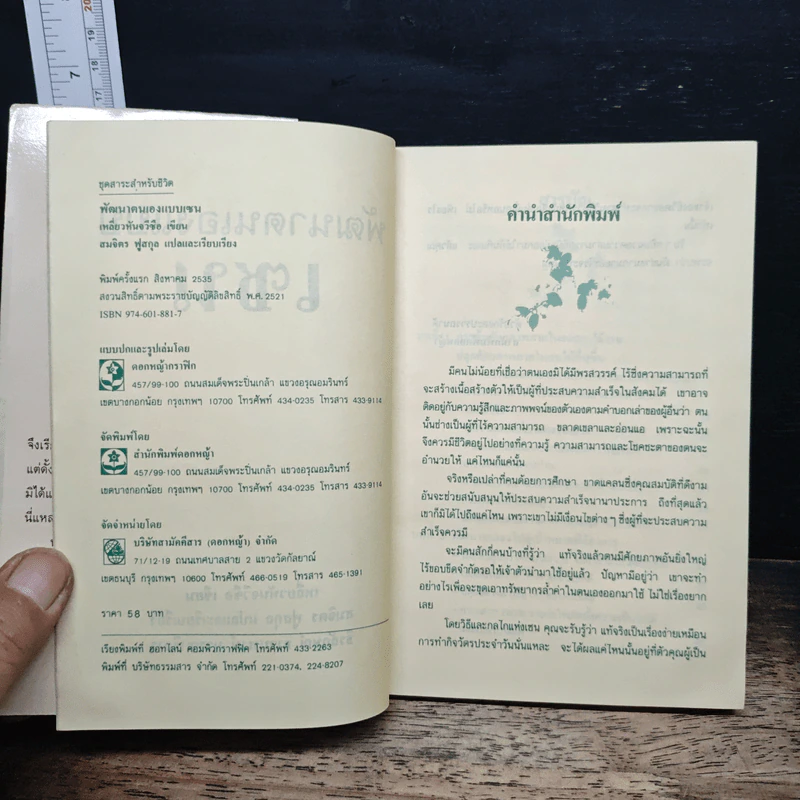 ชุดสาระสำหรับชีวิต
พัฒนาตนเองแบบเซน
เหลี่ยวหันจวีซือ เขียน
สมจิตร ฟูสกุล แปลและเรียบเรียง
พิมพ์ครั้งแรก สิงหาคม 2535
สงวนสิทธิ์ตามพระราชบัญญัติลิขสิทธิ์ พ.ศ. 2521
ISBN 974-601-881-7
แบบปกและรูปเล่มโดย
ดอกหญ้ากราฟิก
457/99-100 ถนนสมเด็จพระปิ่นเกล้า แขวงอรุณอมรินทร์
เขตบางกอกน้อย กรุงเทพฯ 10700 โทรศัพท์ 434-0235 โทรสาร 433-9114
จัดพิมพ์โดย
สำนักพิมพ์ดอกหญ้า
457/99-100 ถนนสมเด็จพระปิ่นเกล้า แขวงอรุณอมรินทร์
เขตบางกอกน้อย กรุงเทพฯ 10700 โทรศัพท์ 434-0235 โทรสาร 433-9114
จัดจำหน่ายโดย
บริษัทสามัคคีสาร (ดอกหญ้า) จำกัด
71/12-19 ถนนเทศบาลสาย 2 แขวงวัดกัลยาณ์
เขตธนบุรี กรุงเทพฯ 10600 โทรศัพท์ 466-0519 โทรสาร 465-1391
ราคา 58 บาท
เรียงพิมพ์ที่ ฮอทไลน์ คอมพิวกราฟฟิค โทรศัพท์ 433-2263
พิมพ์ที่ บริษัทธรรมสาร จำกัด โทรศัพท์ 221-0374, 224-8207
คำนำสำนักพิมพ์
มีคนไม่น้อยที่เชื่อว่าตนเองมิได้มีพรสวรรค์ ไร้ซึ่งความสามารถที่
จะสร้างเนื้อสร้างตัวให้เป็นผู้ที่ประสบความสำเร็จในสังคมได้ เขาอาจ
ติดอยู่กับความรู้สึกและภาพพจน์ของตัวเองตามคำบอกเล่าของผู้อื่นว่า ตน
นั้นช่างเป็นผู้ที่ไร้ความสามารถ ขลาดเขลาและอ่อนแอ เพราะฉะนั้น
จึงควรมีชีวิตอยู่ไปอย่างที่ความรู้ ความสามารถและโชคชะตาของตนจะ
อำนวยให้ แค่ไหนก็แค่นั้น
จริงหรือเปล่าที่คนด้อยการศึกษา ขาดแคลนซึ่งคุณสมบัติที่ดีงาม
อันจะช่วยสนับสนุนให้ประสบความสำเร็จนานาประการ ถึงที่สุดแล้ว
เขาก็มิได้ไปถึงแค่ไหน เพราะเขาไม่มีเงื่อนไขต่างๆ ซึ่งผู้ที่จะประสบความ
สำเร็จควรมี
จะมีคนสักกี่คนบ้างที่รู้ว่า แท้จริงแล้วตนมีศักยภาพอันยิ่งใหญ่
ไร้ขอบขีดจำกัดรอให้เจ้าตัวนำมาใช้อยู่แล้ว ปัญหามีอยู่ว่า เขาจะทำ
อย่างไรเพื่อจะขุดเอาทรัพยากรล้ำค่าในตนเองออกมาใช้ ไม่ใช่เรื่องยาก
เลย
โดยวิธีและกลไกแห่งเซน คุณจะรับรู้ว่า แท้จริงเป็นเรื่องง่ายเหมือน
การทำกิจวัตรประจำวันนั่นแหละ จะได้ผลแค่ไหนนั้นอยู่ที่ตัวคุณผู้เป็น